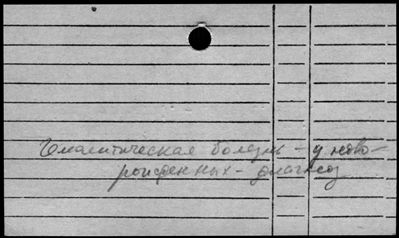 Гемолитическая болезнь - у ново-
рожденных - диагноз